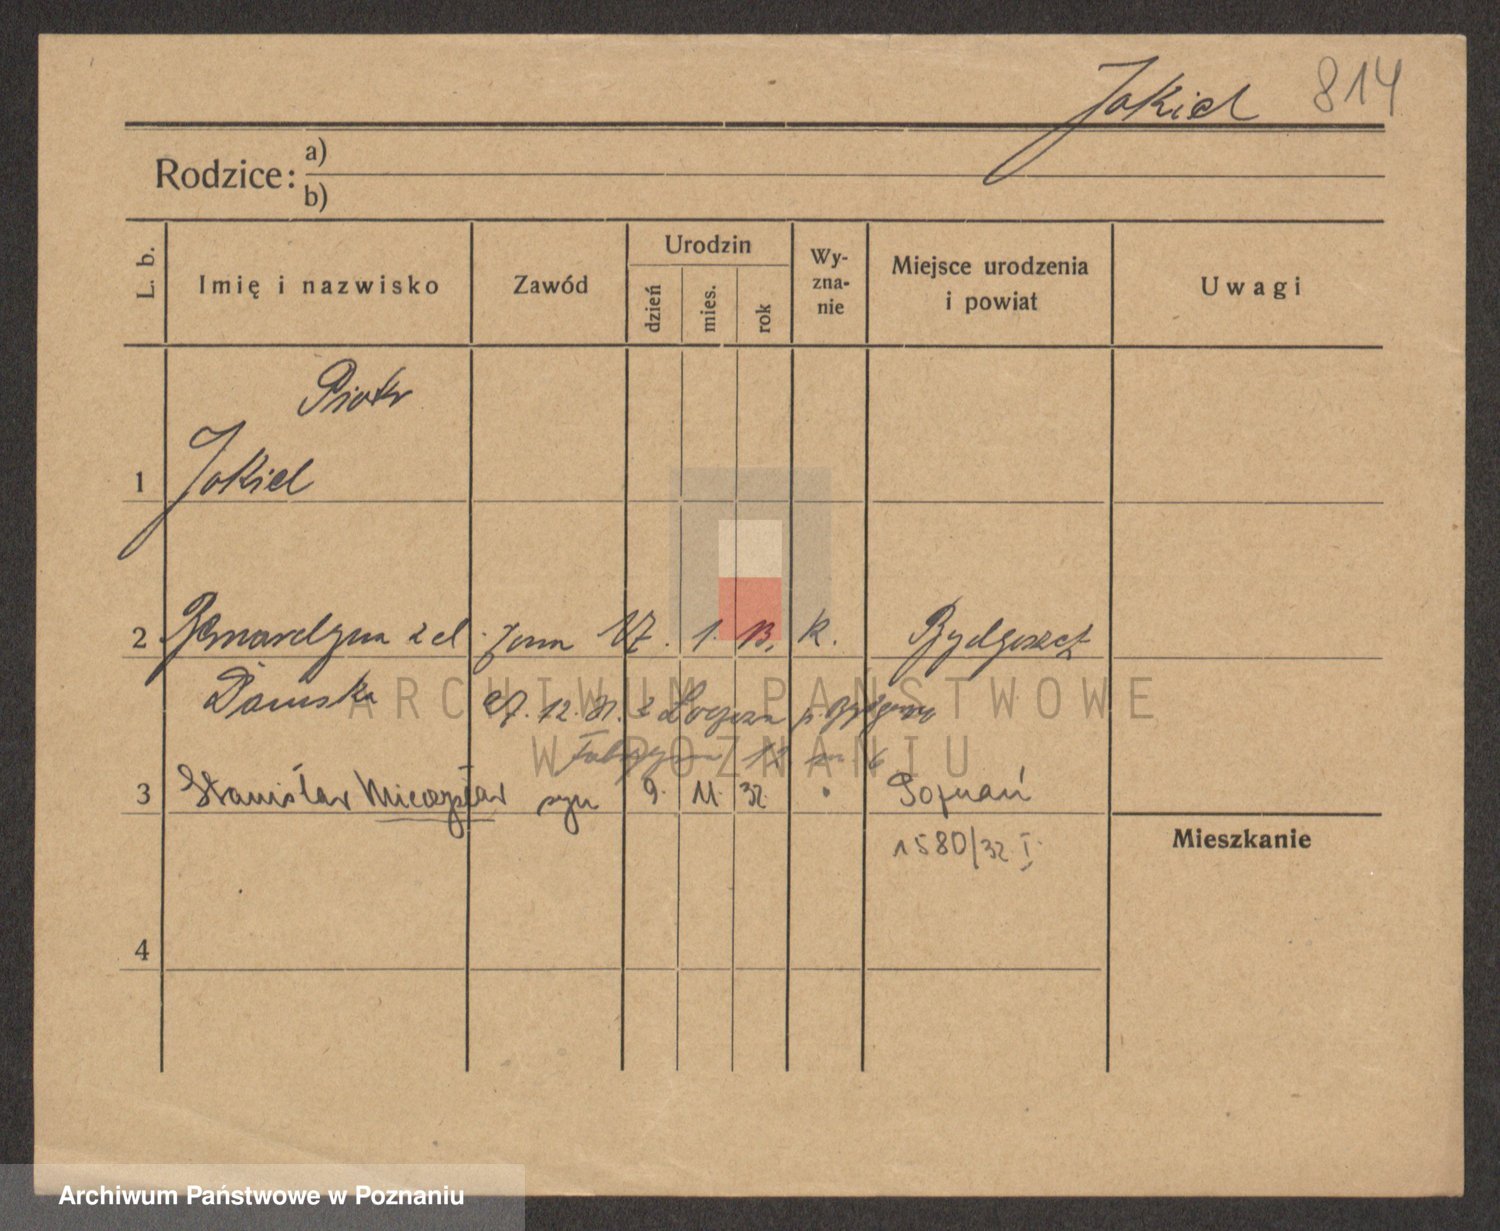 Jakiel 814
Rodzice: a)
b)
L. b.
Imię i nazwisko
Zawód
Urodzin
dzień
mies.
rok
Wy-
zna-
nie
Miejsce urodzenia
i powiat
Uwagi
Piotr
1 Jakiel
2 Bernardyna zd. żona 17. 1. 13. k. Bydgoszcz
Dauska
ARCHIWUM PAŃSTWOWE
27. 12. 31. z
W POZNANIU
3 Stanisław Mieczysław syn 9. 11. 32. " Poznań
1580/32 I.
Mieszkanie
4
Archiwum Państwowe w Poznaniu